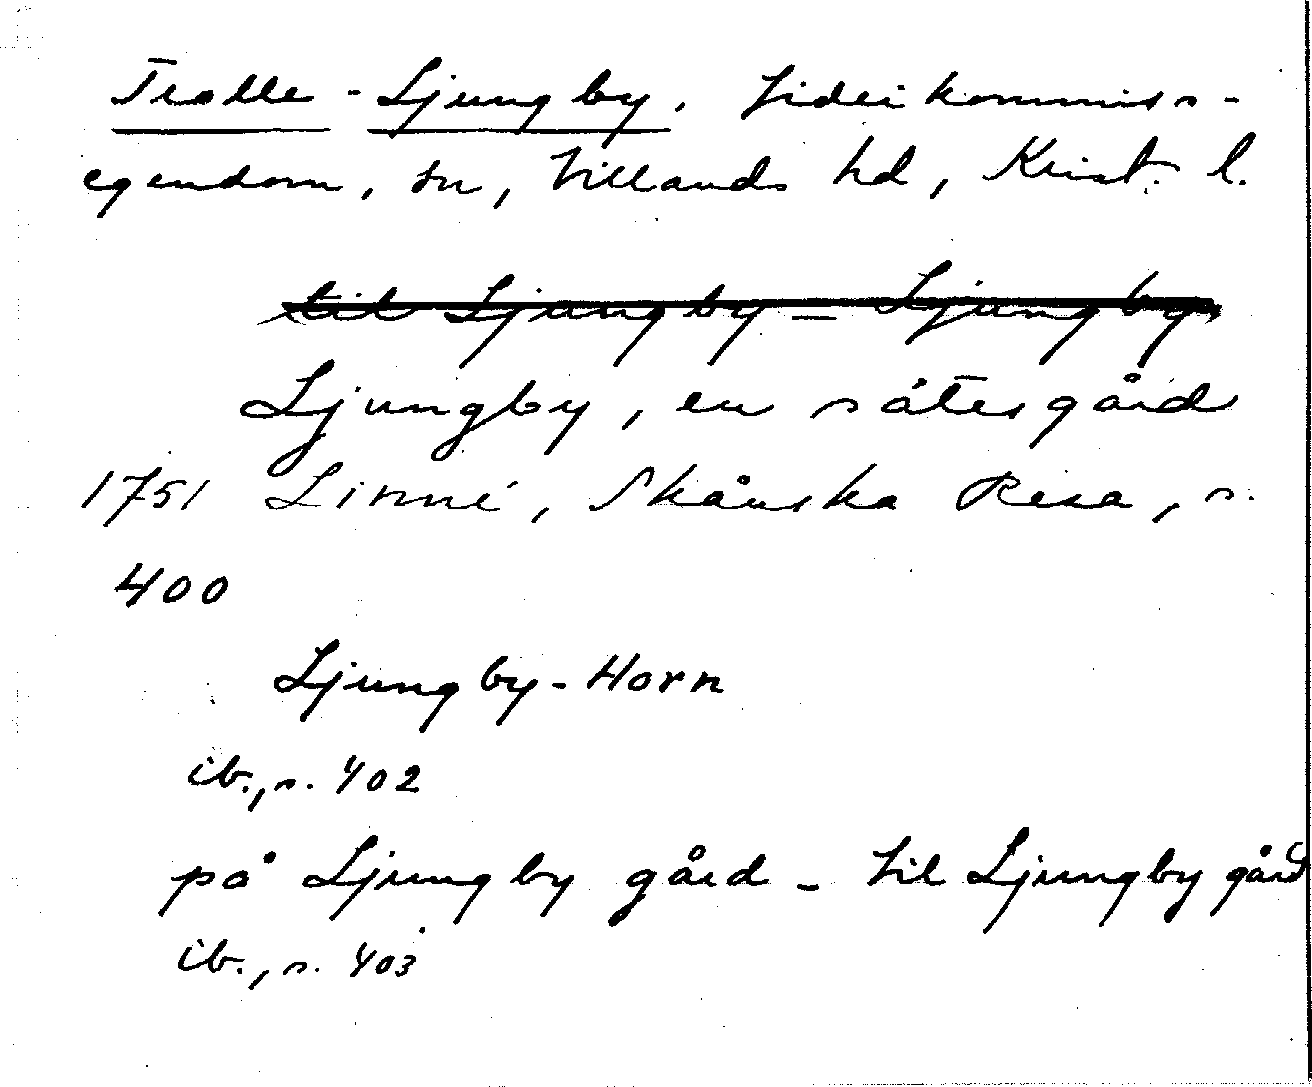 Trolle-Ljungby. Fideikommiss-
egendom, sn, Villands hd, Krist. l.
til Ljungby – Ljungby
Ljungby, en sätesgård
1751 Linné, Skånska Resa, s.
400
Ljungby-Horn
ib., s. 402
på Ljungby gård – til Ljungby gård
ib., s. 403